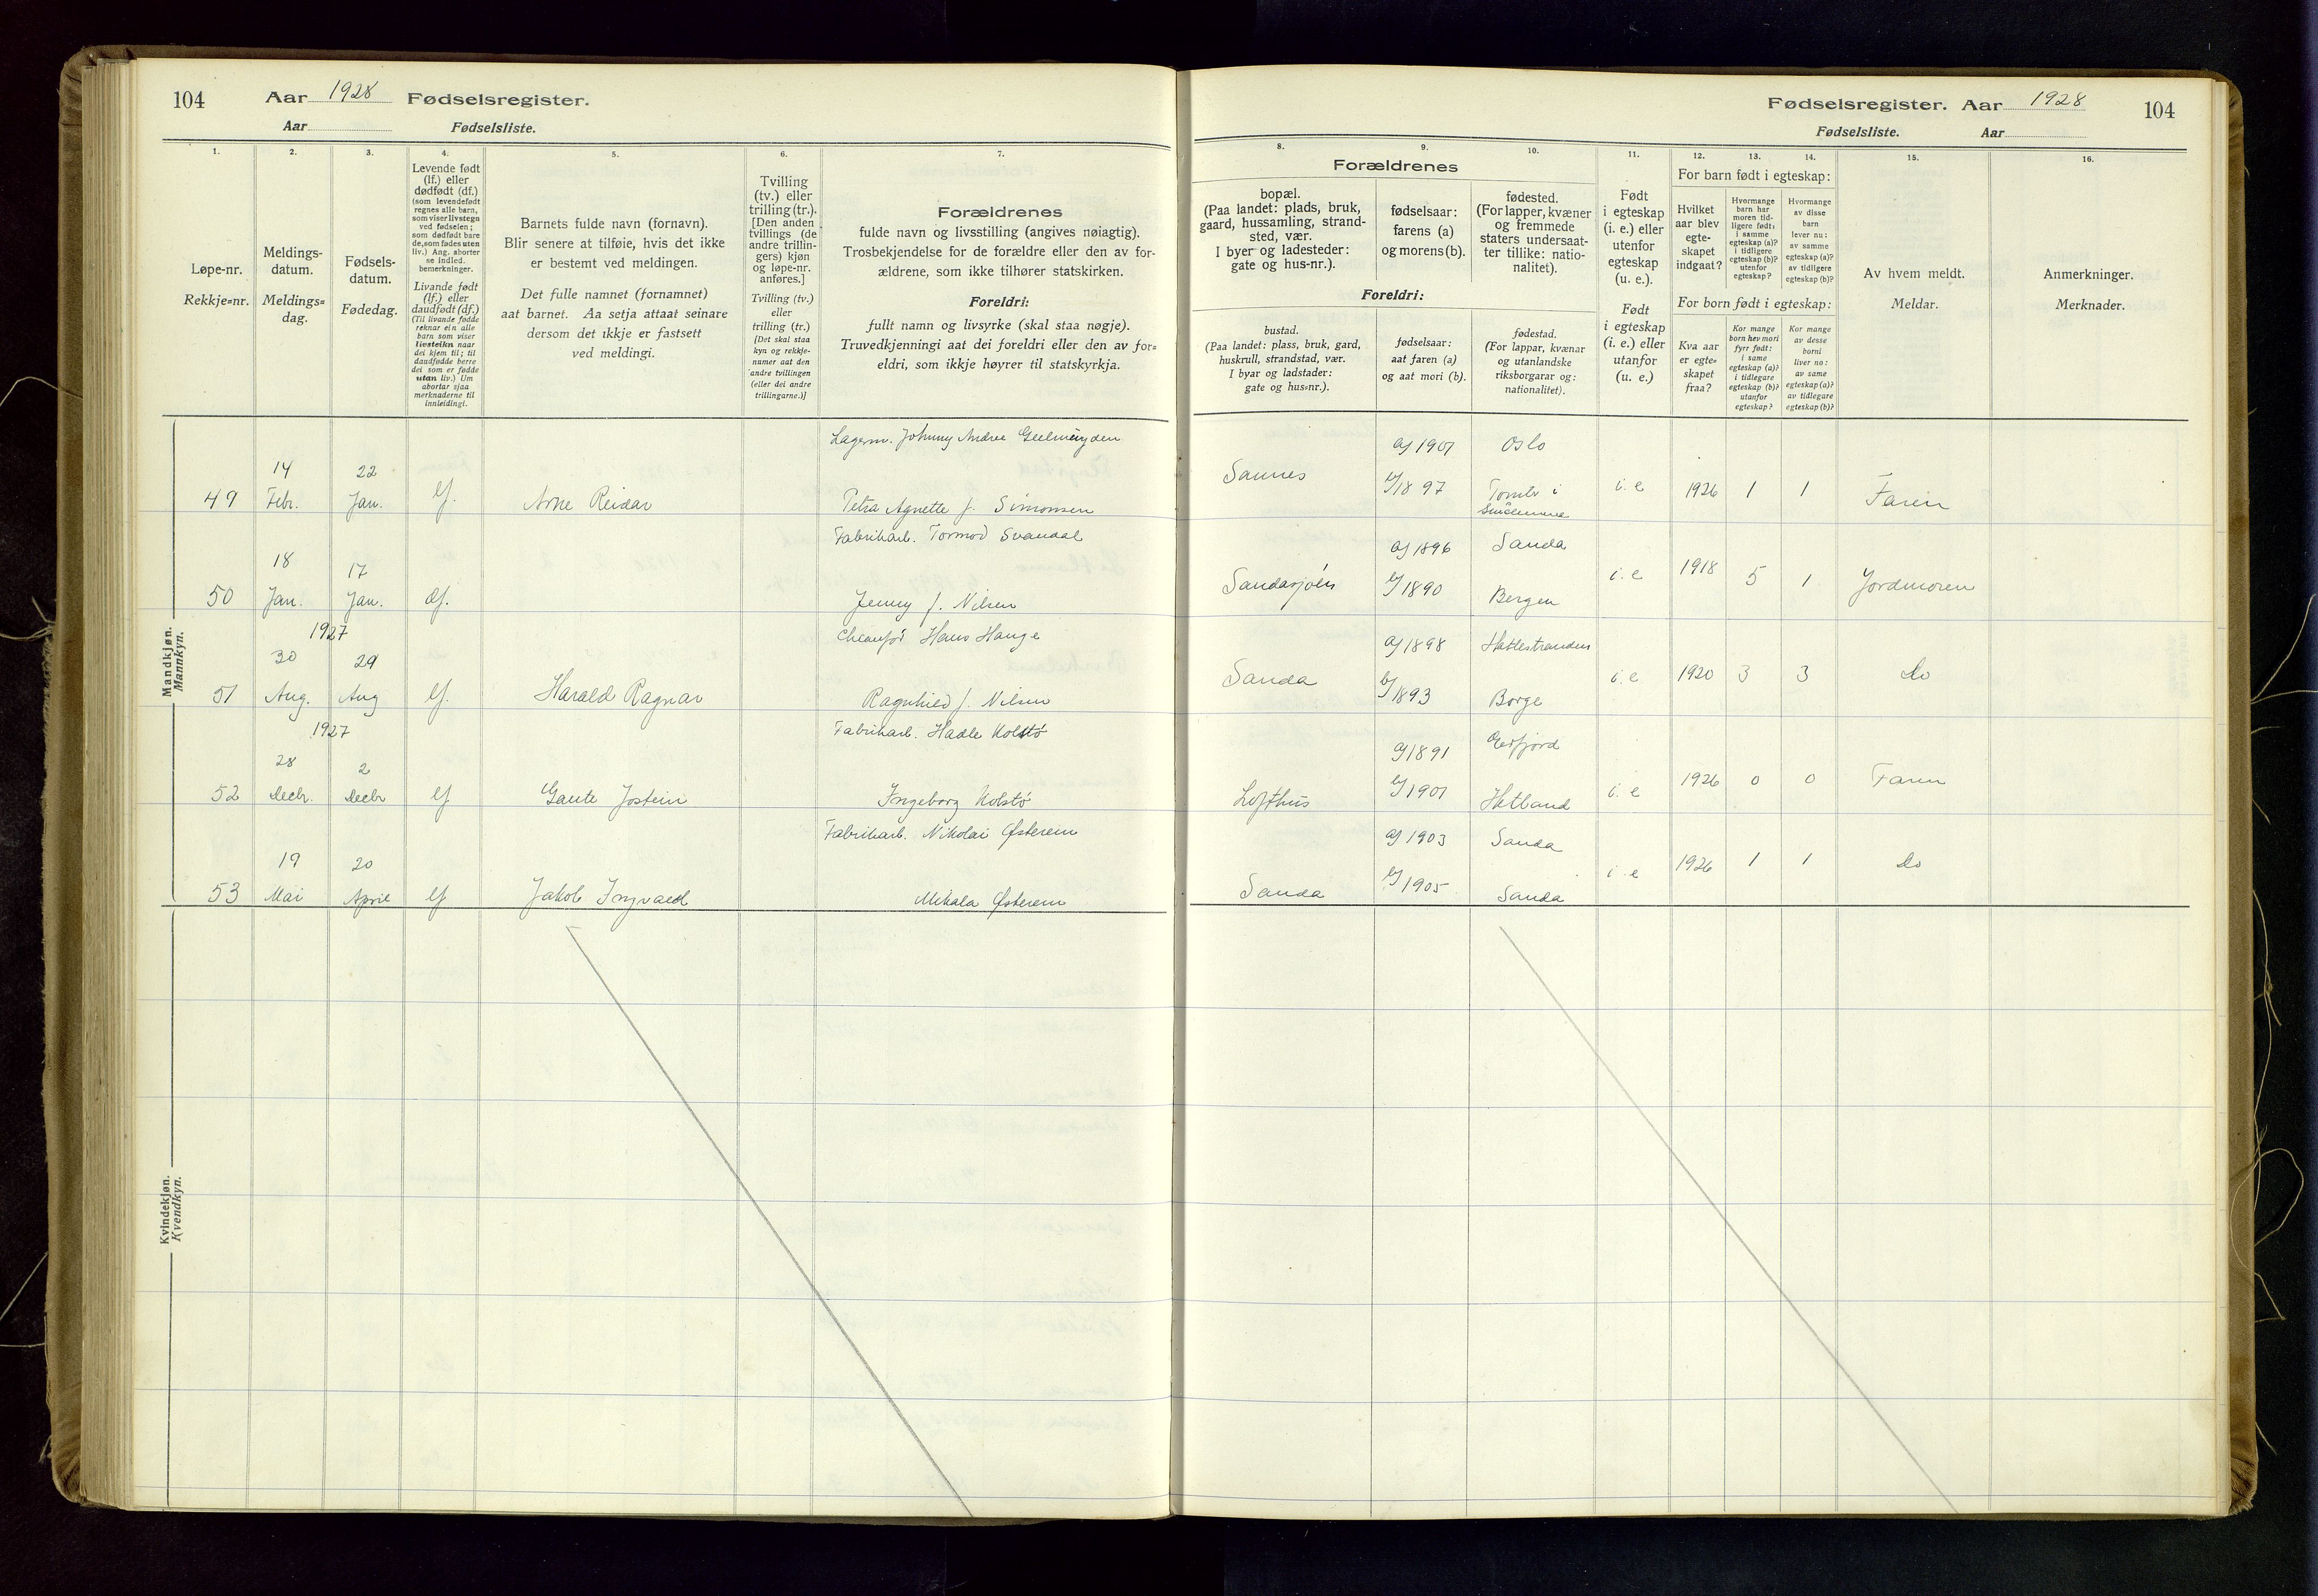 104 Aar 1928 Fødselsregister.
Aar Fødselsliste.
1. 2. 3. 4. 5. 6. 7.
Løpe-nr.
Rekkje=nr.
Meldings-
datum.
Meldings=
dag.
Fødsels-
datum.
Fødedag.
Levende født
(lf.) eller
dødfødt (df.)
(som levendefødt
regnes alle barn,
som viser livstegn
ved fødselen;
som dødfødt bare
de, som fødes uten
liv.) Ang. aborter
se indled.
bemerkninger.
Livande født
(lf.) eller
daudfødt (df.)
(Til livande fødde
reknar ein alle
barn som viser
livsteikn naar
dei kjem til; til
daudfødde berre
dei som er fødde
utan liv.) Um
abortar sjaa
merknaderne til
innleidingi.
Barnets fulde navn (fornavn).
Blir senere at tilføie, hvis det ikke
er bestemt ved meldingen.
Det fulle namnet (fornamnet)
aat barnet. Aa setja attaat seinare
dersom det ikkje er fastsett
ved meldingi.
Tvilling
(tv.) eller
trilling (tr.).
[Den anden
tvillings (de
andre trillin-
gers) kjøn
og løpe-nr.
anføres.]
Tvilling (tv.)
eller
trilling (tr.)
[Det skal staa
kyn og rekkje-
numer aat den
andre tvillingen
(eller dei andre
trillingarne.)]
Forældrenes
fulde navn og livsstilling (angives nøiagtig).
Trosbekjendelse for de forældre eller den av for-
ældrene, som ikke tilhører statskirken.
Foreldri:
fullt namn og livsyrke (skal staa nøgje).
Truvedkjenningi aat dei foreldri eller den av for=
eldri, som ikkje høyrer til statskyrkja.
Mandkjøn.
Mannkyn.
Lagerm. Johnny Andree Geelmuyden
14 22
49 Febr. Jan. lf. Arne Reidar Petra Agnette f. Simonsen
Fabrikarb. Tormod Svandal
18 17
50 Jan. Jan. df. Jenny f. Nilsen
1927 Hans Hauge
30 29
51 Aug. Aug lf. Harald Ragnar Ragnhild f. Nilsen
1927 Fabrikarb. Hadle Kolstø
28 2
52 Decbr. Decbr lf Gaute Jostein Ingeborg Kolstø
Fabrikarb. Nikolai Østerein
19 20
53 Mai April lf Jakob Ingvald Mikala Østerein
Kvindekjøn.
Kvendkyn.
Fødselsregister. Aar 1928 104
Fødselsliste. Aar
8. 9. 10. 11. 12. 13. 14. 15. 16.
Forældrenes
bopæl.
(Paa landet: plads, bruk,
gaard, hussamling, strand-
sted, vær.
I byer og ladesteder:
gate og hus-nr.).
fødselsaar:
farens (a)
og morens (b).
fødested.
(For lapper, kvæner
og fremmede
staters undersaat-
ter tillike: natio-
nalitet).
Foreldri:
bustad.
(Paa landet: plass, bruk, gard,
huskrull, strandstad, vær.
I byar og ladstader:
gate og hus=nr.).
fødselsaar:
aat faren (a)
og aat mori (b).
fødestad.
(For lappar, kvænar
og utanlandske
riksborgarar og:
nationalitet).
Født
i egteskap
(i. e.) eller
utenfor
egteskap
(u. e.).
Født
i egteskap
(i. e.) eller
utanfor
(u. e.)
For barn født i egteskap:
Hvilket
aar blev
egte-
skapet
indgaat?
Hvormange
barn har
moren tid-
ligere født:
i samme
egteskap (a)?
i tidligere
egteskap (b)?
utenfor
egteskap?
Hvormange
av disse
barn
lever nu:
av samme
egteskap (a)?
av tidligere
egteskap (b)?
For born født i egteskap:
Kva aar
er egte=
skapet
fraa?
Kor mange
born hev mori
fyrr født:
i same
egteskap (a)?
i tidlegare
egteskap (b)?
utanfor
egteskap?
Kor mange
av desse
borni
liver no:
av same
egteskap (a)?
av tidlegare
egteskap (b)?
Av hvem meldt.
Meldar.
Anmerkninger.
Merknader.
a) 1901 Oslo
Sannes b) 1897 Tomter i i. e 1926 1 1 Faren
a) 1896 Sanda
Sandasjøen b) 1890 Bergen i. e 1918 5 1 Jordmoren
a) 1898
Sanda b) 1893 Borge i. e 1920 3 3 do
a) 1891
Lofthus b) 1901 Hetland i. e 1926 0 0 Faren
a) 1903 Sanda
Sanda b) 1905 Sanda i. e 1926 1 1 do